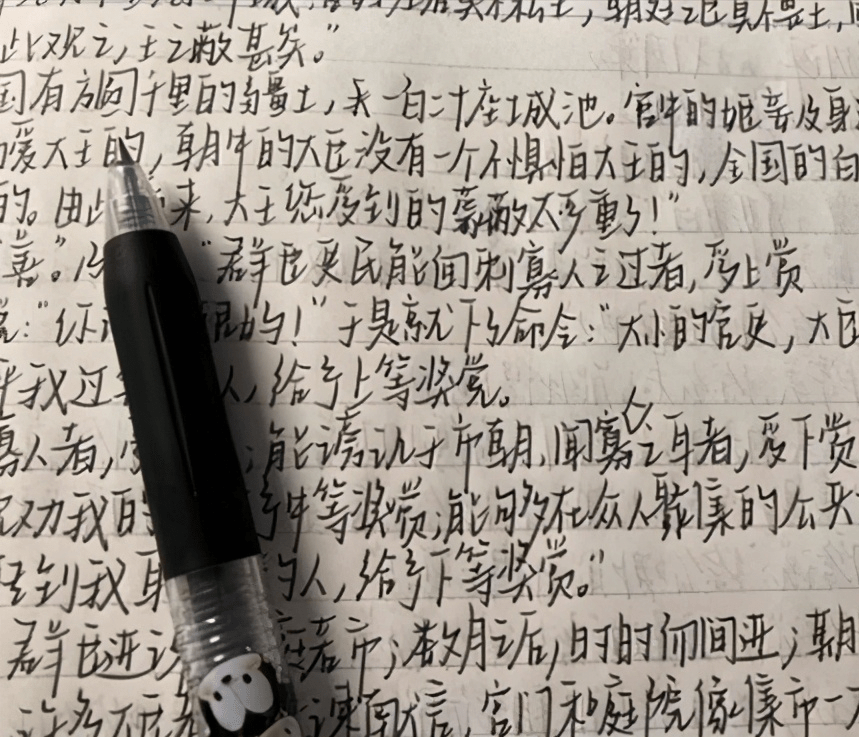 宫妇左右莫不私王,朝廷之臣莫不畏王,
此观之,王之蔽甚矣。”
国有方圆千里的疆土,一百二十座城池。宫中的姬妾及身
爱大王的,朝中的大臣没有一个不惧怕大王的,全国的百
的。由此 来,大王您受到的蒙蔽太严重了!”
善”。 “群臣吏民能面刺寡人之过者,受上赏
: 的!”于是就下了命令:“大小的官吏,大臣
我过 人,给予上等奖赏。
寡人者, ;能谤讥于市朝,闻寡人之耳者,受下赏
劝我的 中等奖赏;能够在众人聚集的公共
到我耳 的人,给予下等奖赏。”
群臣进 若市;数月之后,时时而间进;期
许多大臣 谏言,宫门和庭院像集市一